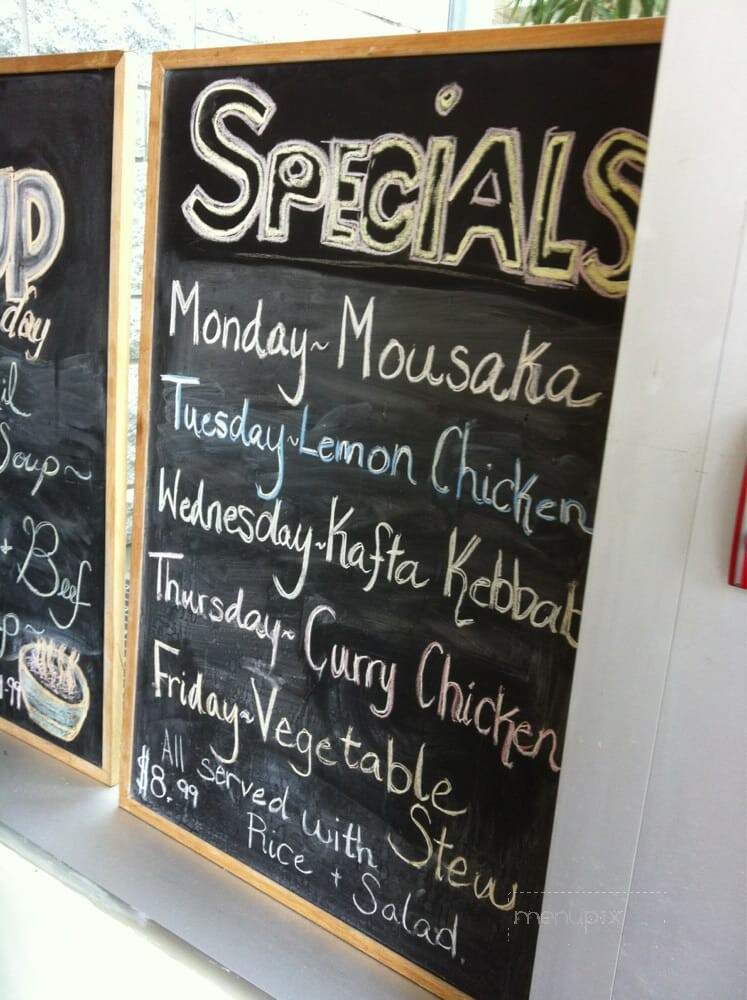 Specials
Monday~Mousaka
Tuesday~Lemon Chicken
Wednesday~Kafta Kebbab
Thursday~Curry Chicken
Friday~Vegetable
Stew
All served with
$8.99
Rice + Salad.
up
day
Soup~
+ Beef
.99
menupix